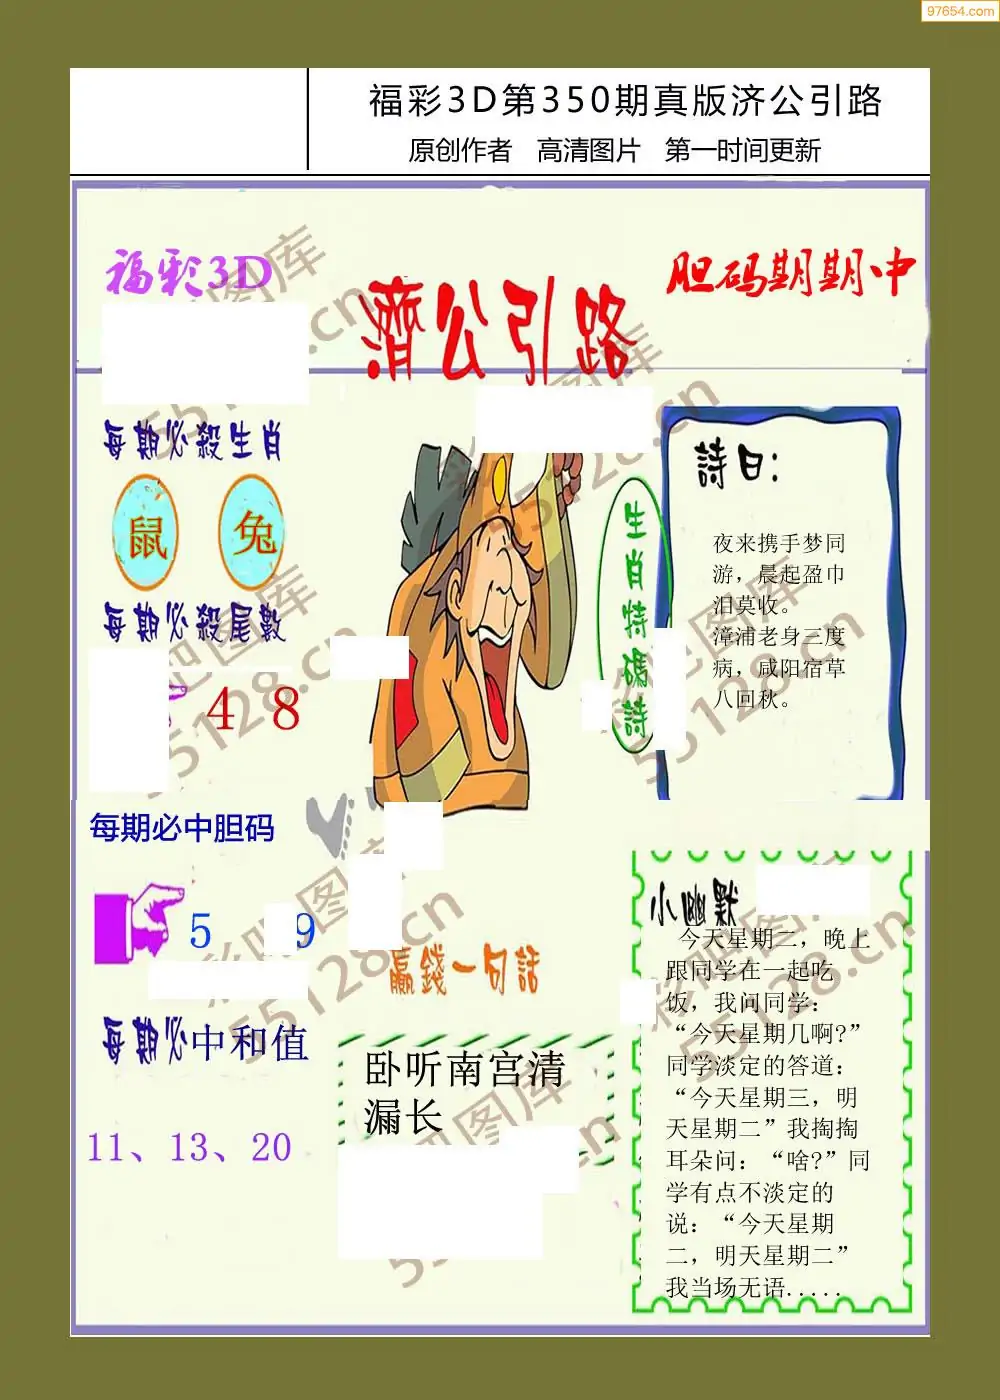 97654.com
福彩3D第350期真版济公引路
原创作者 高清图片 第一时间更新
福彩3D
濟公引路
胆码期期中
每期必殺生肖
鼠 兔
每期必殺尾數
4 8
生肖特碼詩
詩曰:
夜来携手梦同
游，晨起盈巾
泪莫收。
漳浦老身三度
病，咸阳宿草
八回秋。
每期必中胆码
5 9
每期必中和值
11、13、20
赢錢一句話
卧听南宫清
漏长
小幽默
今天星期二，晚上
跟同学在一起吃
饭，我问同学：
“今天星期几啊?”
同学淡定的答道：
“今天星期三，明
天星期二”我掏掏
耳朵问：“啥?”同
学有点不淡定的
说：“今天星期
二，明天星期二”
我当场无语.....
彩吧图库
55128.cn